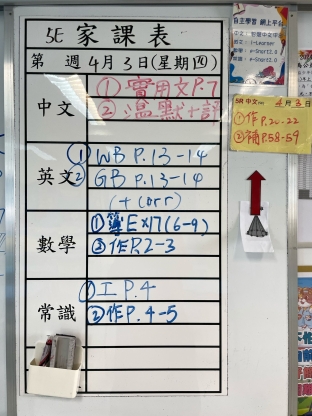 5E 家課表
第 週 4月3日(星期四)
中文
①實用文P.7
②溫默+評
英文
①WB P.13-14
②GB P.13-14
(+corr)
數學
①簿Ex17(6-9)
②作P.2-3
常識
①工P.4
②作P.4-5
自主學習 網上平台
5R 中文 4月3日
①作P.20-22
②補P.58-59